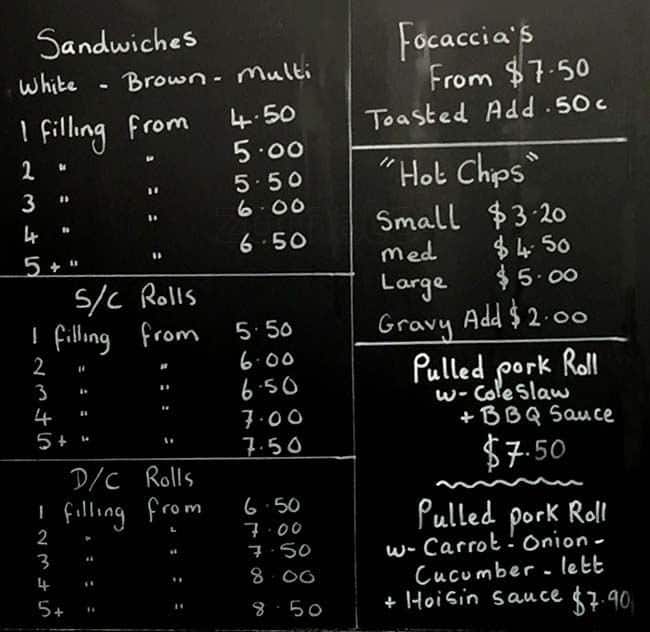 Sandwiches
White - Brown - Multi
1 filling from 4.50
2 " " 5.00
3 " " 5.50
4 " " 6.00
5+ " " 6.50
S/C Rolls
1 filling from 5.50
2 " " 6.00
3 " " 6.50
4 " " 7.00
5+ " " 7.50
D/C Rolls
1 filling from 6.50
2 " " 7.00
3 " " 7.50
4 " " 8.00
5+ " " 8.50
Focaccia's
From $7.50
Toasted Add .50c
"Hot Chips"
Small $3.20
med $4.50
Large $5.00
Gravy Add $2.00
Pulled pork Roll
w- Coleslaw
+ BBQ Sauce
$7.50
Pulled pork Roll
w- Carrot - Onion -
Cucumber - lett
+ Hoisin sauce $7.90